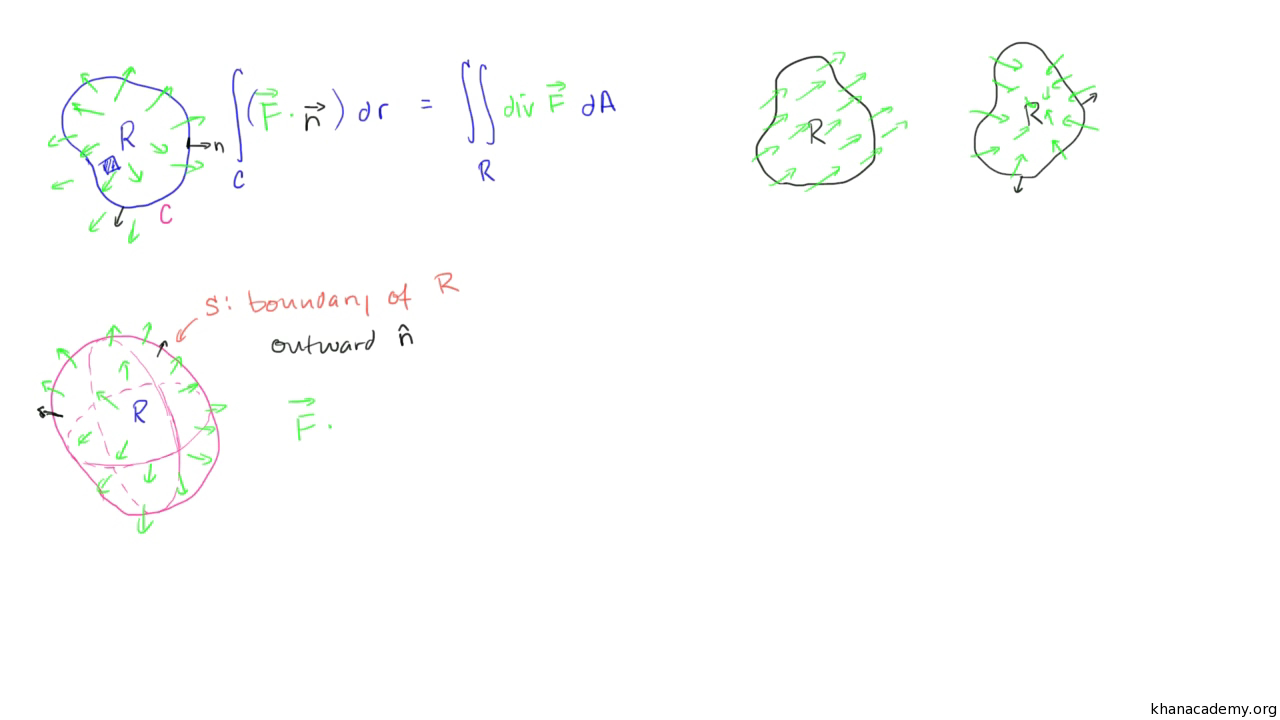 ∫_C (F⃗ · n⃗) dr = ∬_R div F⃗ dA
R
n
C
R
R
S: boundary of R
outward n̂
R
F⃗ ·
khanacademy.org